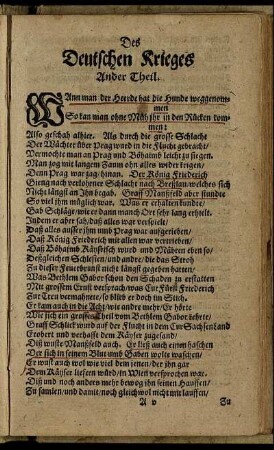 Des
Deutschen Krieges
Ander Theil.
WAnn man der Heerde hat die Hunde weggenom-
men
So kan man ohne Müh jhr in den Rücken kom-
men:
Also geschah alhier. Als durch die grosse Schlacht
Der Wächter über Prag ward in die Flucht gebracht/
Vermochte man an Prag und Böhaimb leicht zu siegen.
Man zog mit langem Zaum ohn alles wider kriegen/
Denn Prag war zag-hinan. Der König Friederich
Gieng nach verlohrner Schlacht nach Breßlau/welches sich
Nicht längst an Ihn begab. Graff Manßfeld aber kundte
So viel jhm müglich war. Was er erhalten kundte/
Gab Schläge/wie er dann manch Ort sehr lang erhielt.
Indem er aber sah/daß alles war verspielt/
Daß alles ausser jhm umb Prag war aufgerieben/
Daß König Friederich mit allen war vertrieben/
Daß Böhaimb Käysrisch ward und Mähren eben so/
Deßgleichen Schlesien/und andre/die das Stroh
Zu dieser Feuersbrunst nicht längst gegeben hatten/
Was Bethlem Gabor schon den Schaden zu erstatten
Mit grossem Ernst versprach/was Cur Fürst Friederich
Zur Treu vermahnete/so blieb er doch im Stich.
Er kam auch in die Acht/wie andre mehr/Er hörte
Wie sich ein grosses Theil vom Bethlem Gabor kehrte/
Graff Schlick ward auf der Flucht in dem Cur Sachsen Land
Erobert und verhafft dem Käyser zugesand/
Diß wuste Manßfeld auch. Er ließ auch einen haschen
Der sich in seinem Blut umb Gaben wolte waschen/
Er wust auch wol wie viel dem jenen/der jhn gar
Dem Käyser liefern würd/in Wien versprochen war.
Diß und noch anders mehr bewog jhn seinen Hauffen/
Zu samlen/und damit/noch gleichwol nicht wil lauffen/
A
Zu